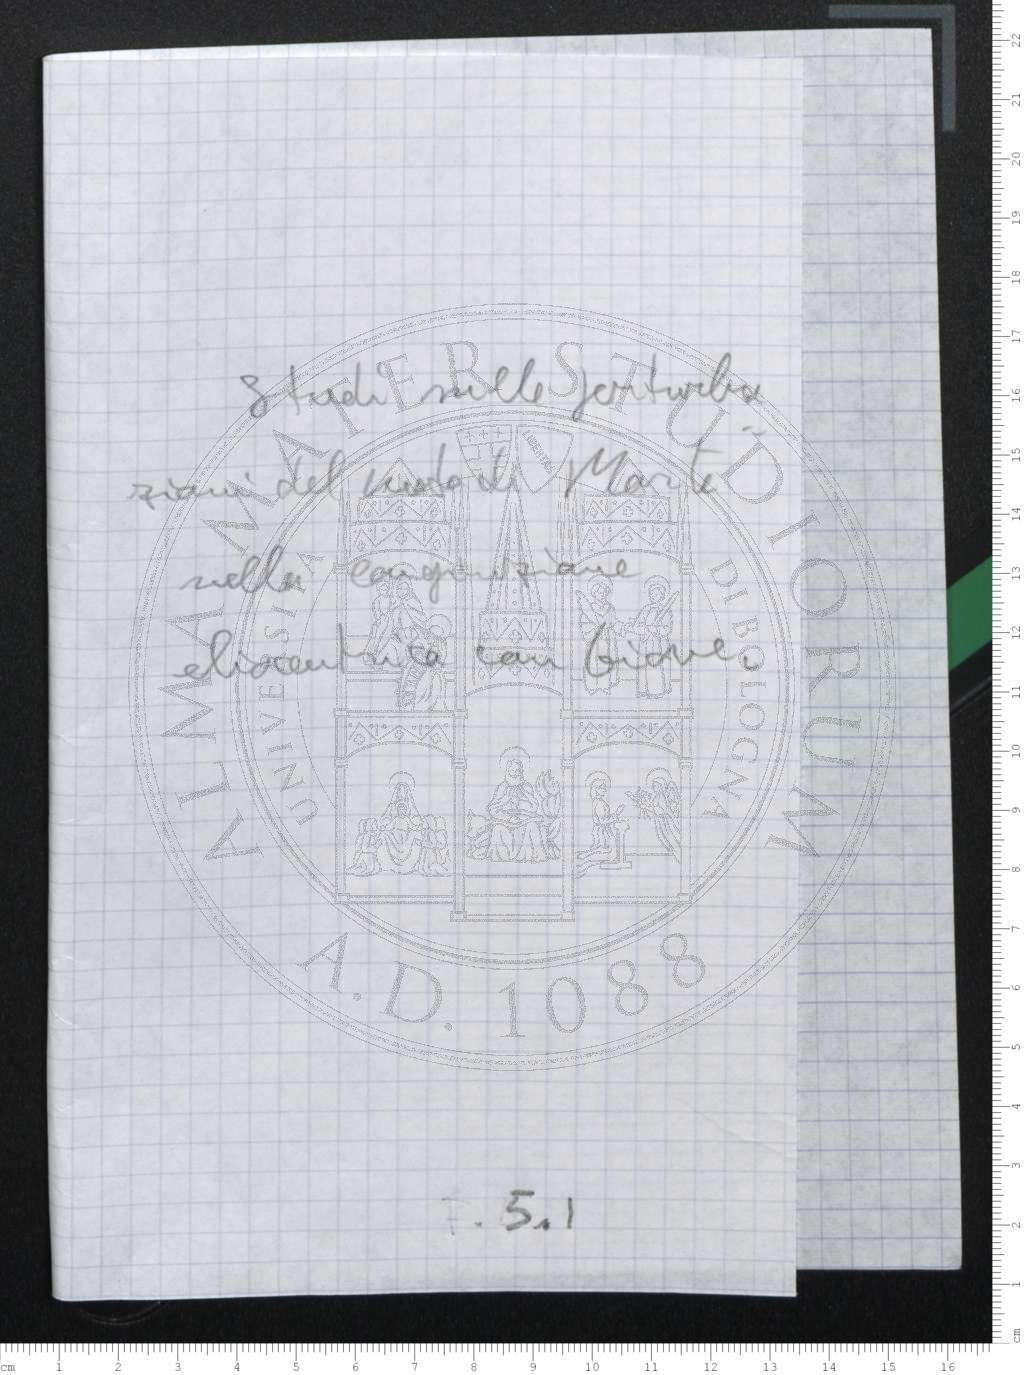 Studi sulle perturba
zioni del moto di Marte
nella congiunzione
eliocentrica con Giove.
7.5.1
ALMA MATER STUDIORUM
UNIVERSITÀ DI BOLOGNA
LIBERTAS
A.D. 1088
22
21
20
19
18
17
16
15
14
13
12
11
10
9
8
7
6
5
4
3
2
1
cm
cm 1 2 3 4 5 6 7 8 9 10 11 12 13 14 15 16